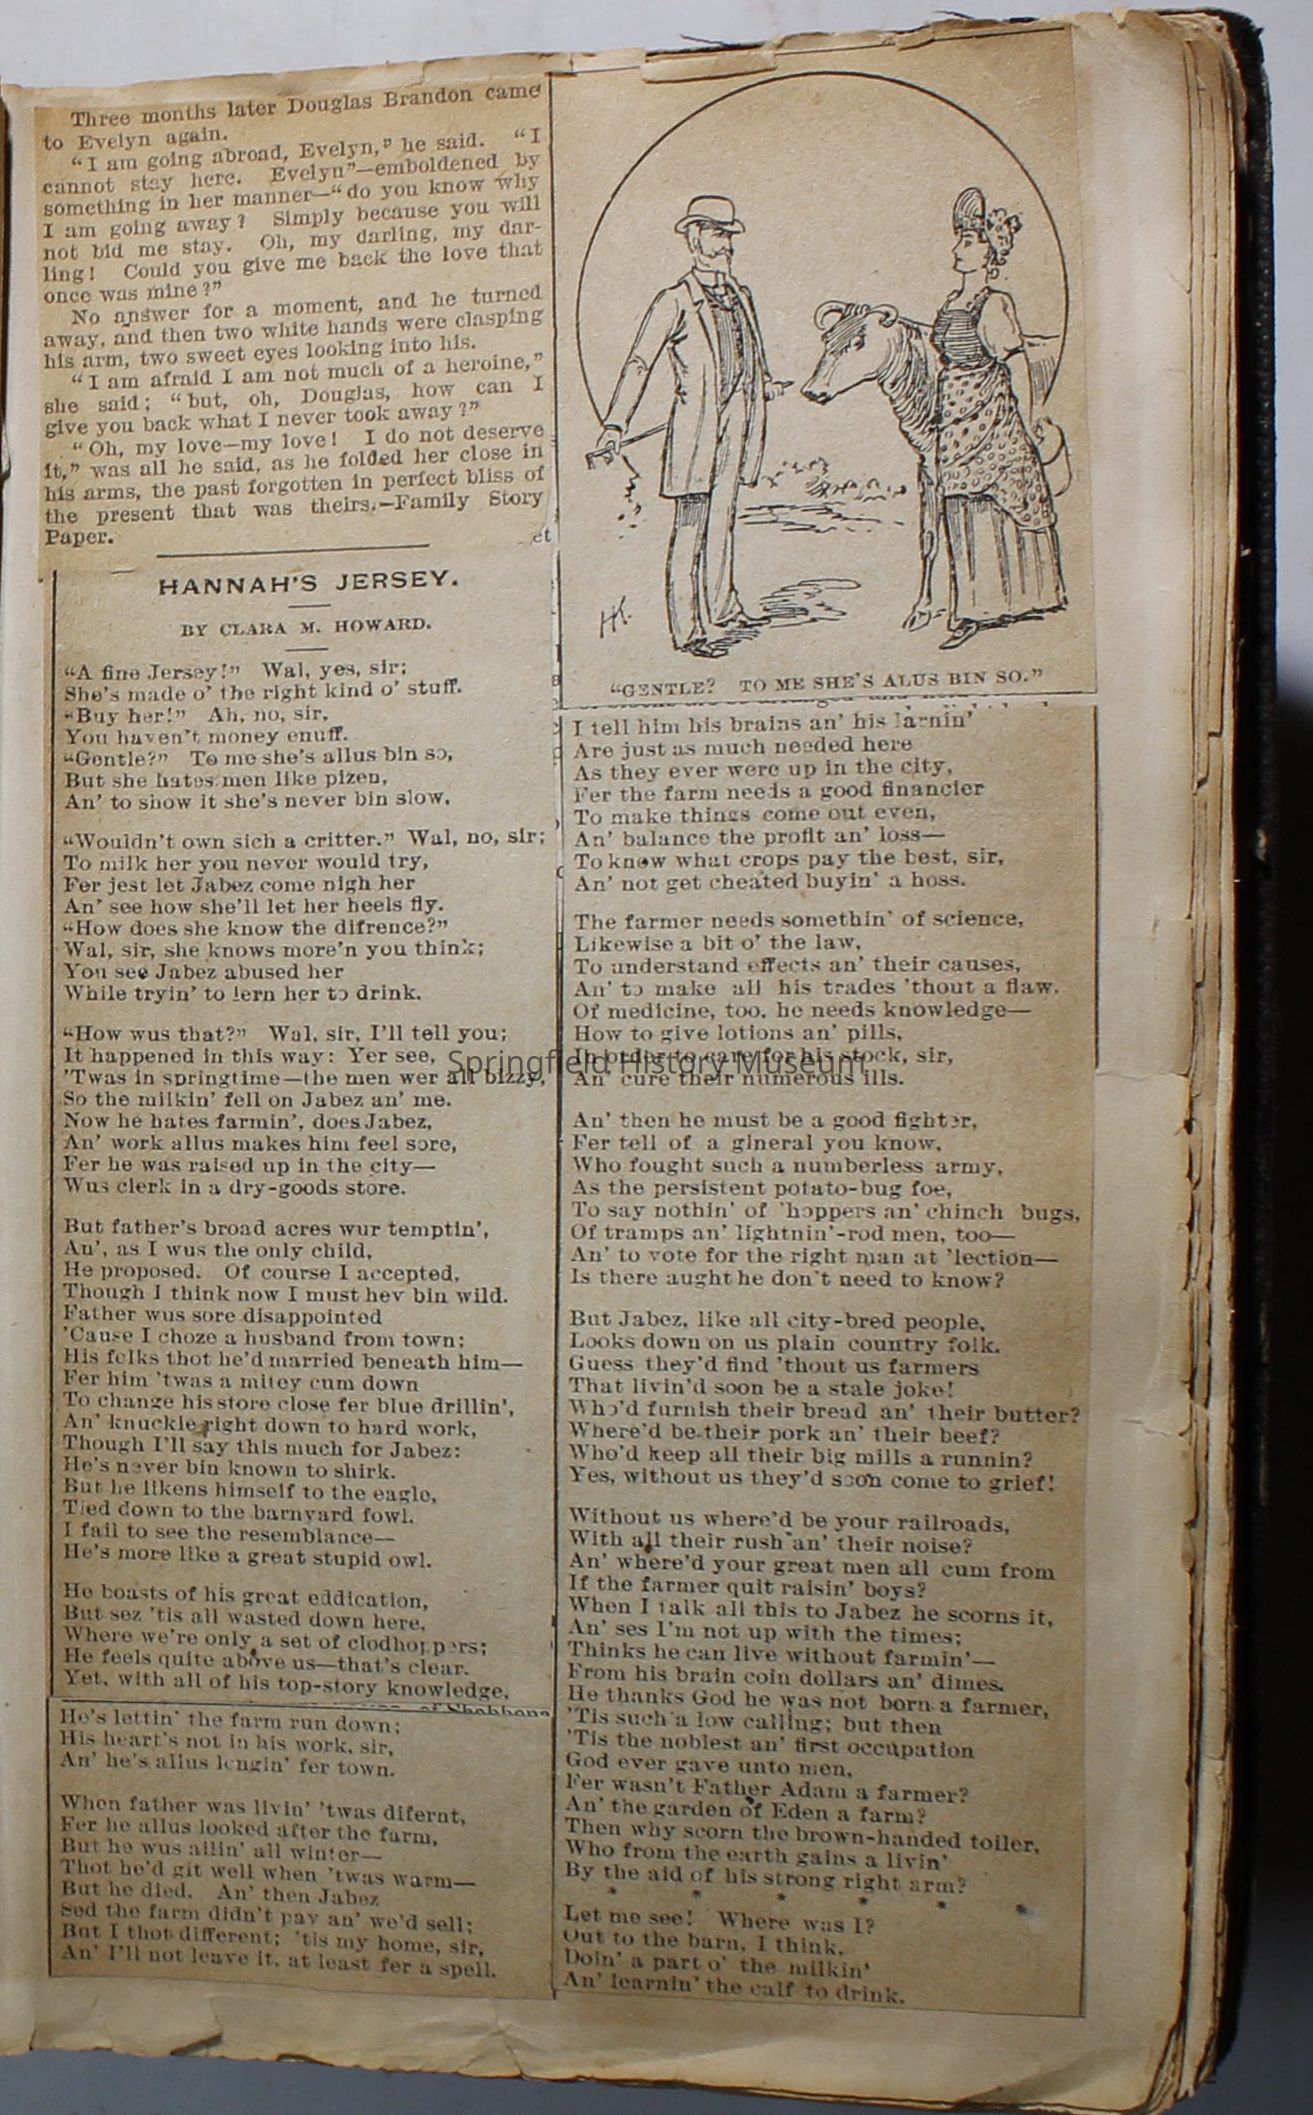 Three months later Douglas Brandon came
to Evelyn again.
“I am going abroad, Evelyn,” he said. “I
cannot stay here. Evelyn”—emboldened by
something in her manner—“do you know why
I am going away? Simply because you will
not bid me stay. Oh, my darling, my dar-
ling! Could you give me back the love that
once was mine?”
No answer for a moment, and he turned
away, and then two white hands were clasping
his arm, two sweet eyes looking into his.
“I am afraid I am not much of a heroine,”
she said; “but, oh, Douglas, how can I
give you back what I never took away?”
“Oh, my love—my love! I do not deserve
it,” was all he said, as he folded her close in
his arms, the past forgotten in perfect bliss of
the present that was theirs.—Family Story
Paper.
HANNAH'S JERSEY.
BY CLARA M. HOWARD.
“A fine Jersey!” Wal, yes, sir;
She's made o' the right kind o' stuff.
“Buy her!” Ah, no, sir,
You haven't money enuff.
“Gentle?” To me she's allus bin so,
But she hates men like pizen,
An' to show it she's never bin slow.
“Wouldn't own sich a critter.” Wal, no, sir;
To milk her you never would try,
Fer jest let Jabez come nigh her
An' see how she'll let her heels fly.
“How does she know the difrence?”
Wal, sir, she knows more'n you think;
You see Jabez abused her
While tryin' to lern her to drink.
“How wus that?” Wal, sir, I'll tell you;
It happened in this way: Yer see,
'Twas in springtime—the men wer all bizzy,
So the milkin' fell on Jabez an' me.
Now he hates farmin', does Jabez,
An' work allus makes him feel sore,
Fer he was raised up in the city—
Wus clerk in a dry-goods store.
But father's broad acres wur temptin',
An', as I wus the only child,
He proposed. Of course I accepted,
Though I think now I must hev bin wild.
Father wus sore disappointed
'Cause I choze a husband from town;
His folks thot he'd married beneath him—
Fer him 'twas a mitey cum down
To change his store close fer blue drillin',
An' knuckle right down to hard work,
Though I'll say this much for Jabez:
He's never bin known to shirk.
But he likens himself to the eagle,
Tied down to the barnyard fowl.
I fail to see the resemblance—
He's more like a great stupid owl.
He boasts of his great eddication,
But sez 'tis all wasted down here,
Where we're only a set of clodhoppers;
He feels quite above us—that's clear.
Yet, with all of his top-story knowledge,
He's lettin' the farm run down;
His heart's not in his work, sir,
An' he's allus longin' fer town.
When father was livin' 'twas difernt,
Fer he allus looked after the farm,
But he wus ailin' all winter—
Thot he'd git well when 'twas warm—
But he died. An' then Jabez
Sed the farm didn't pay an' we'd sell;
But I thot different; 'tis my home, sir,
An' I'll not leave it, at least fer a spell.
HK.
“GENTLE? TO ME SHE'S ALUS BIN SO.”
I tell him his brains an' his larnin'
Are just as much needed here
As they ever were up in the city,
Fer the farm needs a good financier
To make things come out even,
An' balance the profit an' loss—
To know what crops pay the best, sir,
An' not get cheated buyin' a hoss.
The farmer needs somethin' of science,
Likewise a bit o' the law,
To understand effects an' their causes,
An' to make all his trades 'thout a flaw.
Of medicine, too, he needs knowledge—
How to give lotions an' pills,
In order to care for his stock, sir,
An' cure their numerous ills.
An' then he must be a good fighter,
Fer tell of a gineral you know,
Who fought such a numberless army,
As the persistent potato-bug foe,
To say nothin' of 'hoppers an' chinch bugs,
Of tramps an' lightnin'-rod men, too—
An' to vote for the right man at 'lection—
Is there aught he don't need to know?
But Jabez, like all city-bred people,
Looks down on us plain country folk.
Guess they'd find 'thout us farmers
That livin'd soon be a stale joke!
Who'd furnish their bread an' their butter?
Where'd be their pork an' their beef?
Who'd keep all their big mills a runnin?
Yes, without us they'd soon come to grief!
Without us where'd be your railroads,
With all their rush an' their noise?
An' where'd your great men all cum from
If the farmer quit raisin' boys?
When I talk all this to Jabez he scorns it,
An' ses I'm not up with the times;
Thinks he can live without farmin'—
From his brain coin dollars an' dimes.
He thanks God he was not born a farmer,
'Tis such a low calling; but then
'Tis the noblest an' first occupation
God ever gave unto men,
Fer wasn't Father Adam a farmer?
An' the garden of Eden a farm?
Then why scorn the brown-handed toiler,
Who from the earth gains a livin'
By the aid of his strong right arm?
* * * * * *
Let me see! Where was I?
Out to the barn, I think,
Doin' a part o' the milkin'
An' learnin' the calf to drink.
Springfield History Museum